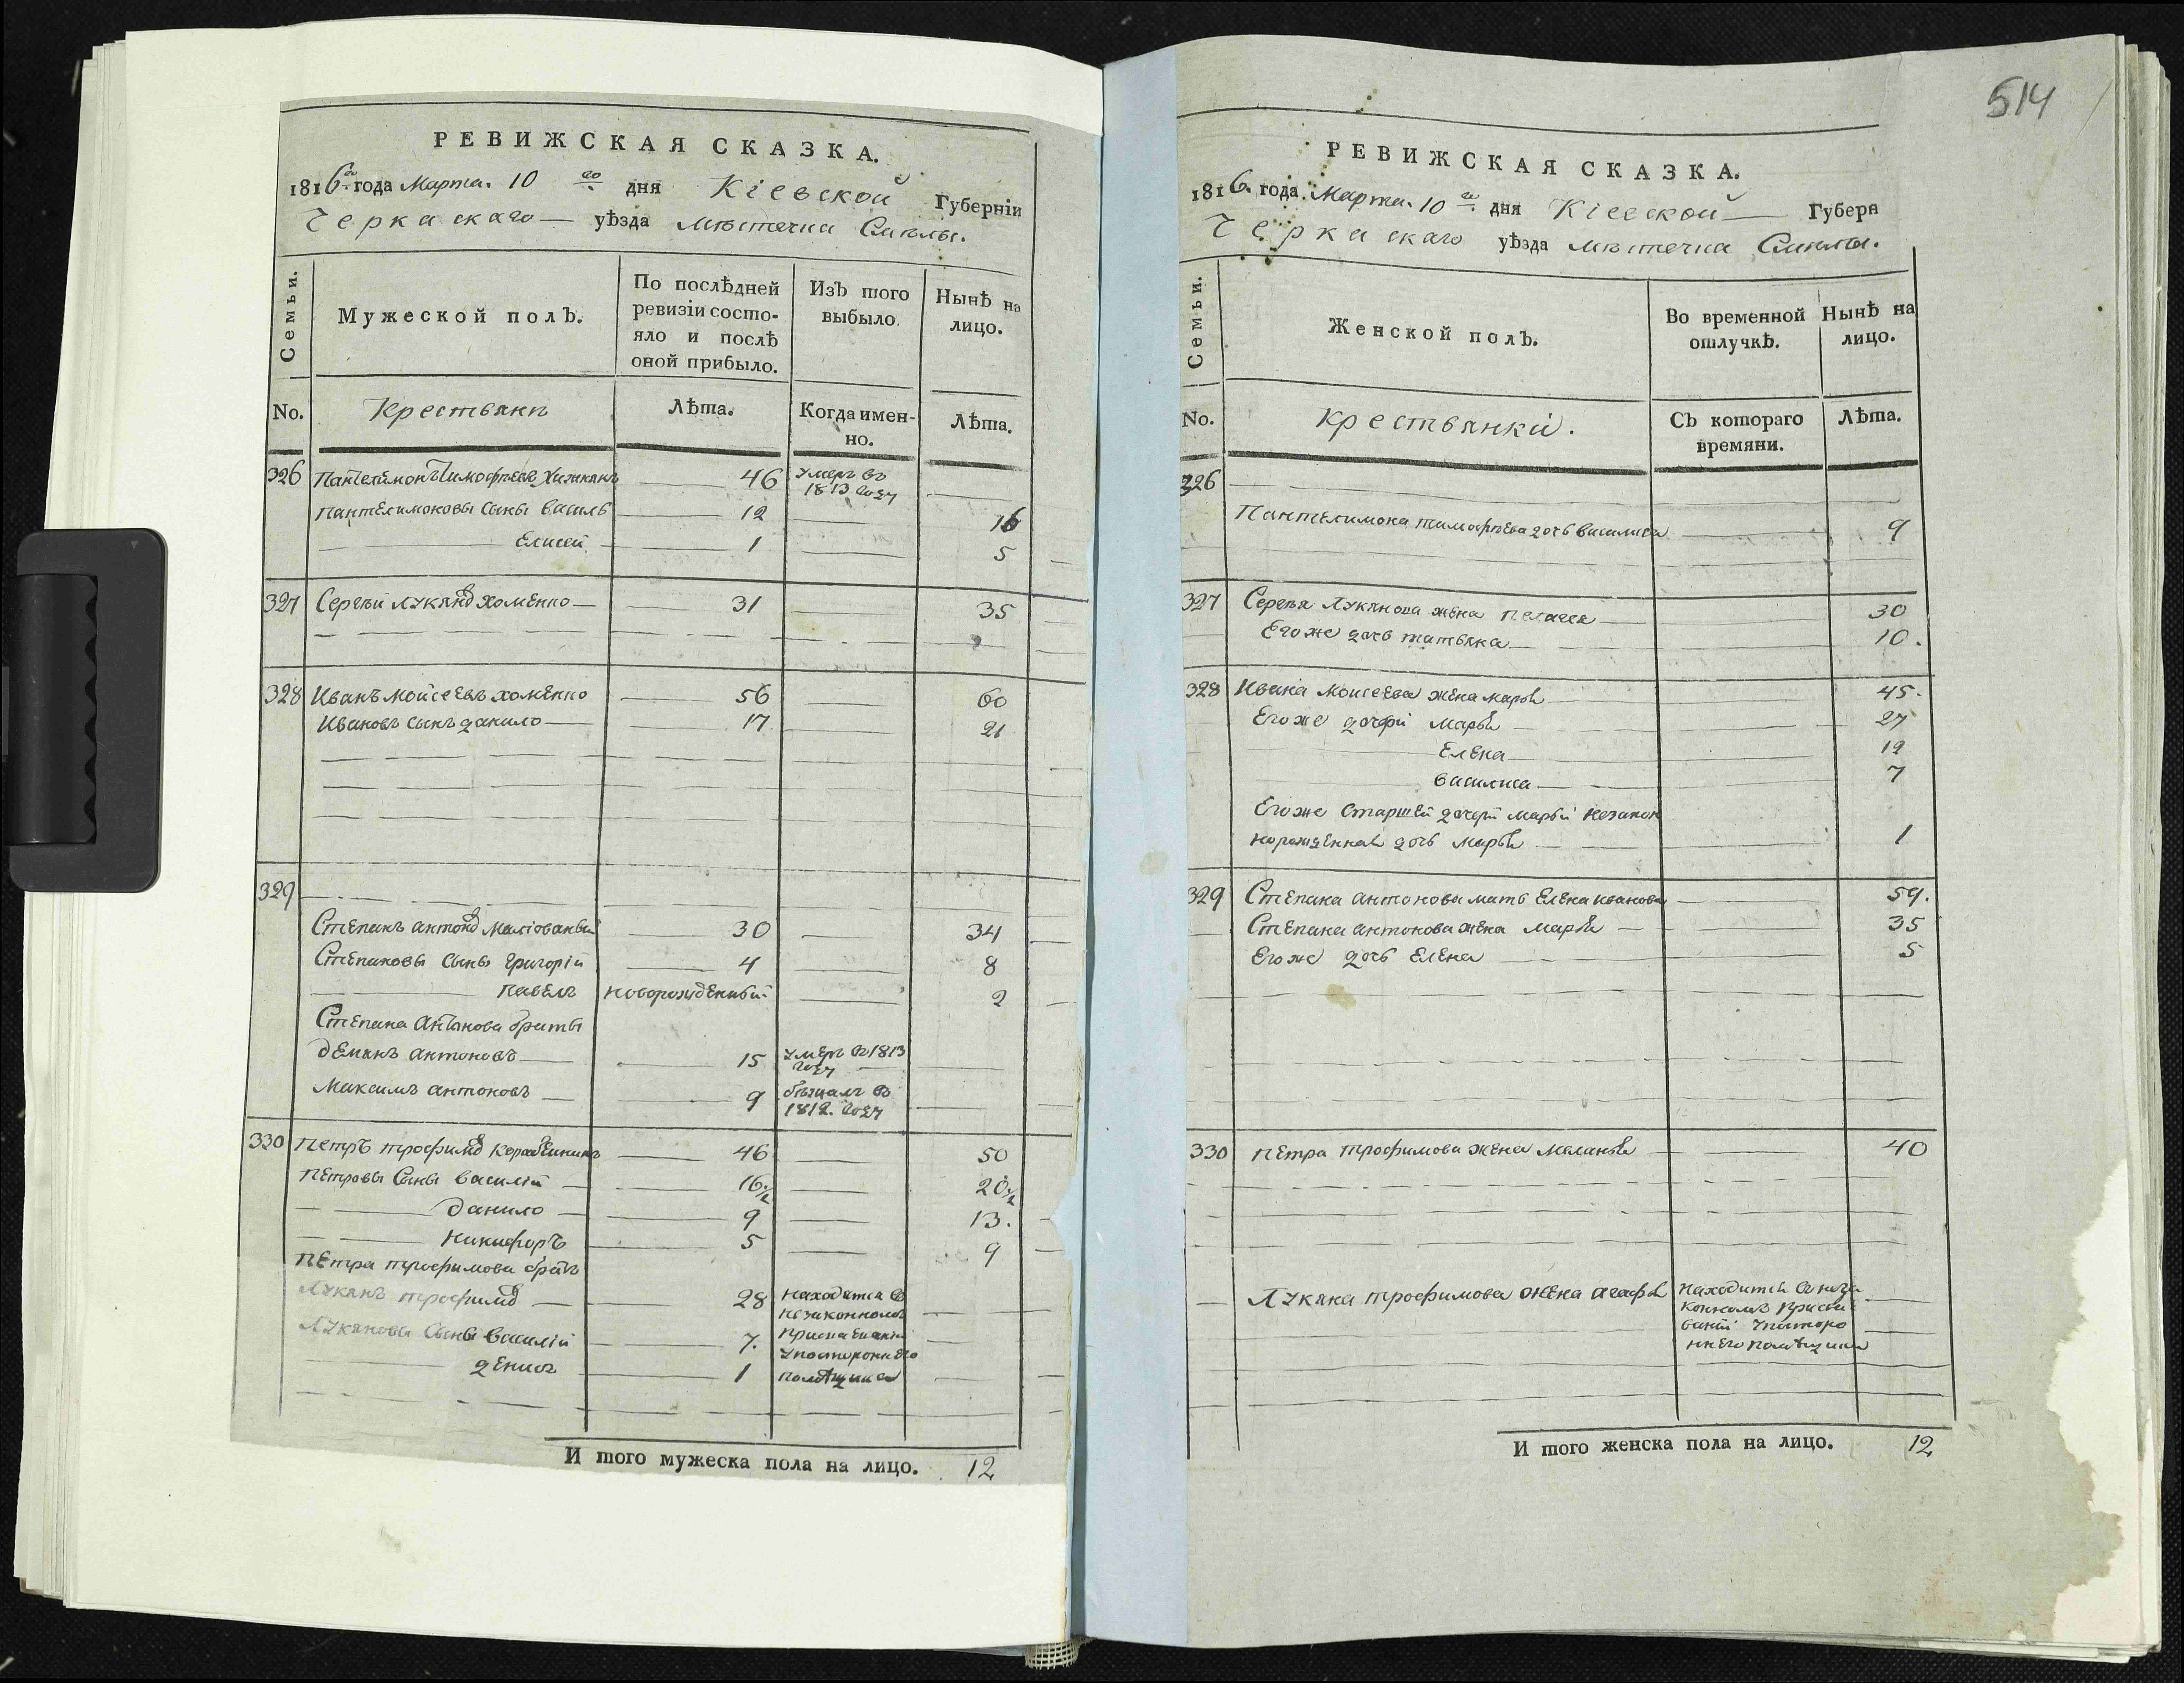 РЕВИЖСКАЯ СКАЗКА.
1816го года Марта. 10 го дня Кіевской Губерніи
Черкаскаго — уѣзда мѣстечка Смѣлы.
Семьи.
Мужеской полъ.
По послѣдней ревизіи состо-
яло и послѣ
оной прибыло.
Изъ того выбыло.
Нынѣ на лицо.
No.
Крестьянъ
Лѣта.
Когда имен-
но.
Лѣта.
326 Пантелимонъ Тимофѣевъ 46 умеръ въ
1813 году
Пантелимоновы сыны Василь 12 16
Елисей 1 5
327 Сергѣй Лукяновъ Хоменко 31 35
328 Иванъ Мойсеевъ Хоменко 56 60
Ивановъ сынъ Данило 17 21
329
Степанъ Антоновъ Маліованый 30 34
Степановы сыны Григорій 4 8
Павелъ новорожденный 2
Степана Антонова браты
Демянъ Антоновъ 15 умеръ в 1813
году
Максимъ Антоновъ 9 бѣжалъ въ
1812. году
330 Петръ Трофимовъ 46 50
Петровы сыны Василій 16½ 20½
Данило 9 13.
Никифоръ 5 9
Петра Трофимова братъ
Лукянъ Трофимовъ 28 находится въ
незаконномъ
Лукяновы сыны Василій 7.
у посторонняго
Денисъ 1 помѣщика
И того мужеска пола на лицо. 12
514
РЕВИЖСКАЯ СКАЗКА.
1816. года Марта. 10 го дня Кіевской — Губерн
Черкаскаго уѣзда мѣстечка Смѣлы.
Семьи.
Женской полъ.
Во временной
отлучкѣ.
Нынѣ на
лицо.
No.
Крестьянки.
Съ котораго
времяни.
Лѣта.
326
Пантелимона Тимофѣева дочь Василиса 9
327 Сергѣя Лукянова жена Пелагея 30
Его же дочь Татьяна 10.
328 Ивана Моисеева жена Марья 45.
Его же дочери Марья 27
Елена 12
Василиса 7
Его же старшей дочери Марьи незакон
норожденная дочь Марья 1
329 Степана Антонова мать Елена Иванова 59.
Степана Антонова жена Марья 35
Его же дочь Елена 5
330 Петра Трофимова жена Маланья 40
Лукяна Трофимова жена Агафья находится въ неза
конномъ присво
еніи у посторо
нняго помѣщика
И того женска пола на лицо. 12